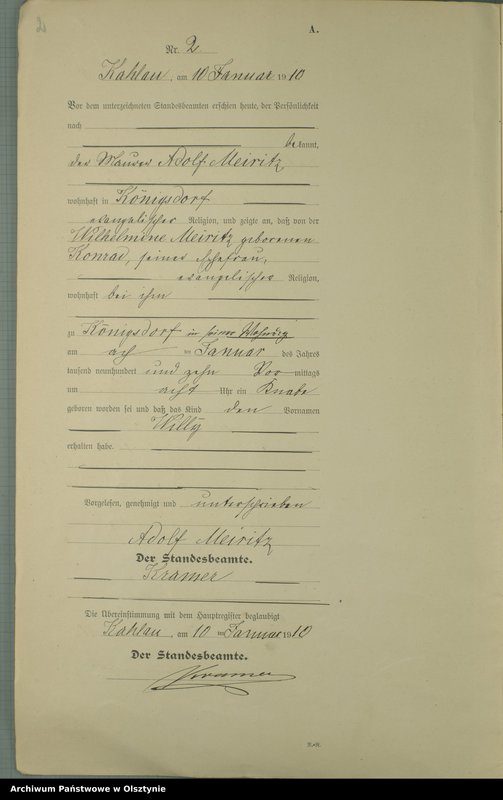 2
A.
Nr. 2.
Kahlau, am 10 Januar 1910
Vor dem unterzeichneten Standesbeamten erschien heute, der Persönlichkeit
nach
bekannt,
der Maurer Adolf Meiritz
wohnhaft in Königsdorf
evangelischer Religion, und zeigte an, daß von der
Wilhelmine Meiritz geborenen
Konrad, seiner Ehefrau,
evangelischer Religion,
wohnhaft bei ihm
zu Königsdorf in seiner Wohnung
am acht Januar des Jahres
tausend neunhundert und zehn Vormittags
um acht Uhr ein Knabe
geboren worden sei und daß das Kind den Vornamen
Willy
erhalten habe.
Vorgelesen, genehmigt und unterschrieben
Adolf Meiritz
Der Standesbeamte.
Kramer
Die Übereinstimmung mit dem Hauptregister beglaubigt
Kahlau, am 10 ten Januar 1910
Der Standesbeamte.
Kramer
Archiwum Państwowe w Olsztynie